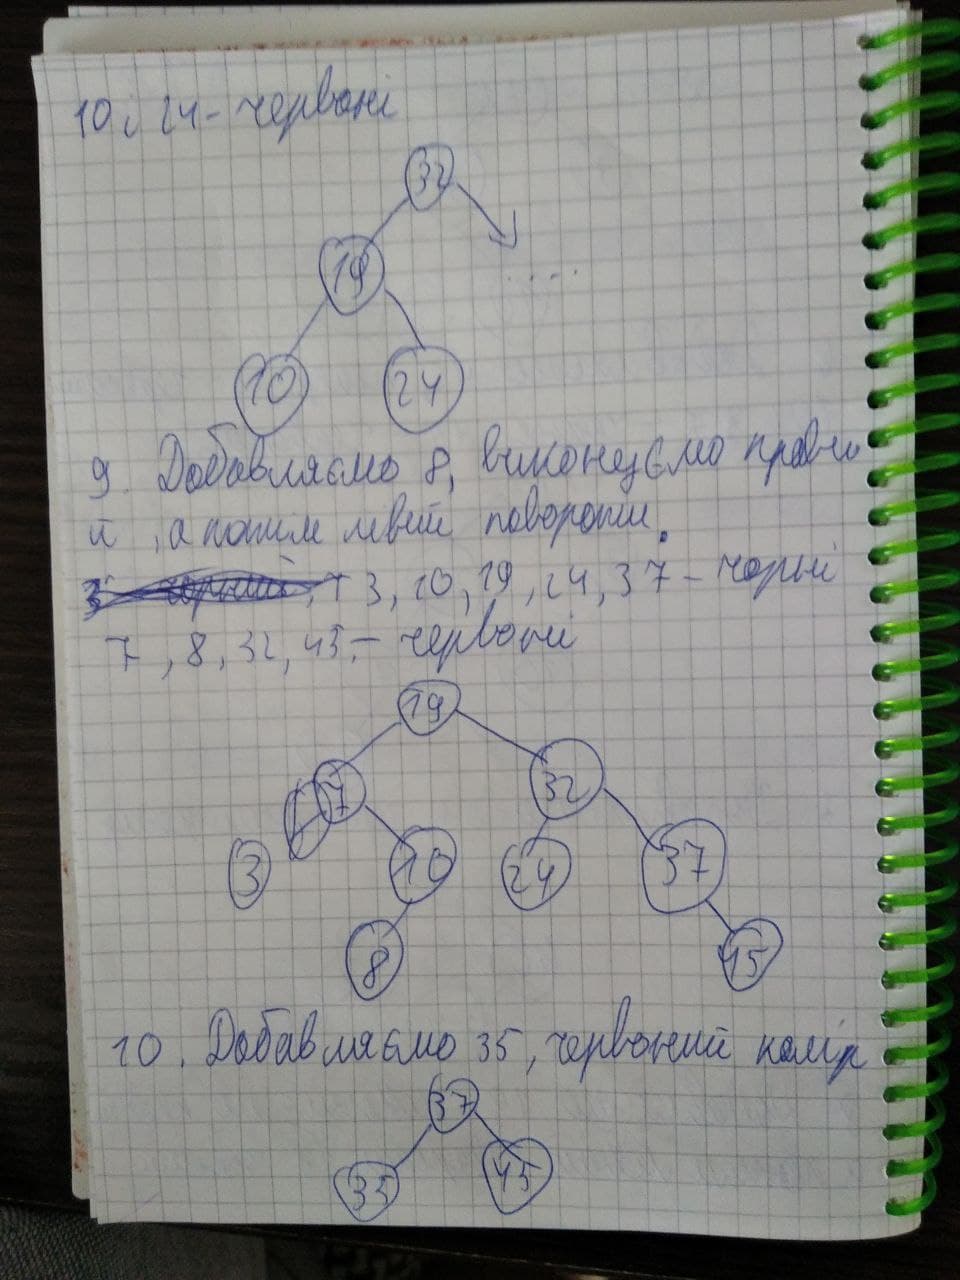 10 і 24 - червоні
32
19
....
10 24
9. Добавляємо 8, виконуємо правий
й, а потім лівий повороти.
3, 10, 19, 24, 37 - чорні
7, 8, 32, 45 - червоні
19
7 32
3 10 24 37
8 45
10. Добавляємо 35, червоний колір
37
35 45